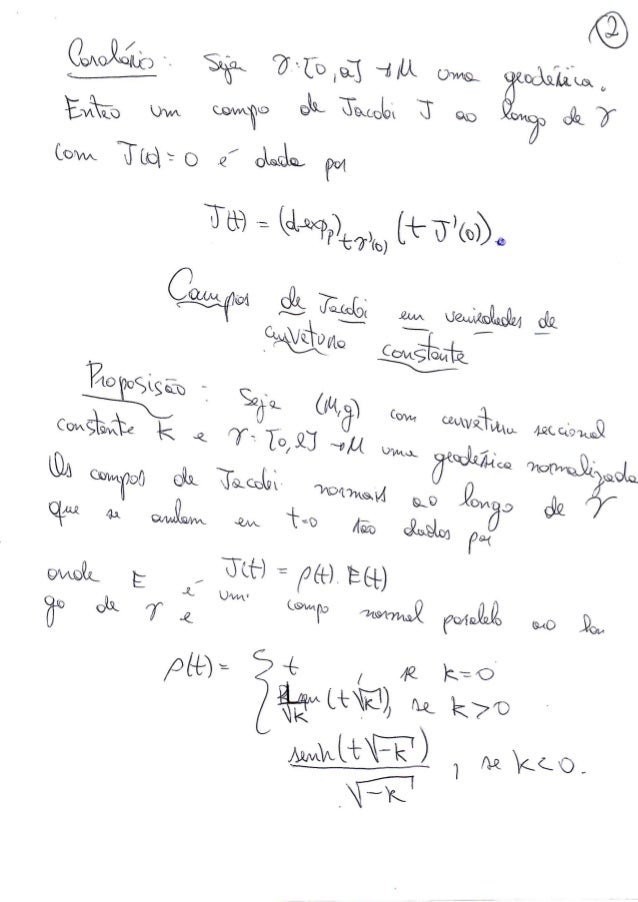 2
Corolário: Seja γ:[0,a]→M uma geodésica.
Então um campo de Jacobi J ao longo de γ
com J(0)=0 é dado por
J(t) = (d exp_p)_{tγ'(0)} (t J'(0)).
Campos de Jacobi em variedades de
curvatura constante
Proposisão: Seja (M,g) com curvatura seccional
constante k e γ:[0,l]→M uma geodésica normalizada
Os campos de Jacobi normais ao longo de γ
que se anulam en t=0 são dados por
J(t) = ρ(t).E(t)
onde E é um campo normal paralelo ao lon
go de γ e
ρ(t) = { t , se k=0
1/√k sen (t√k), se k>0
senh(t√-k)/√-k , se k<0.